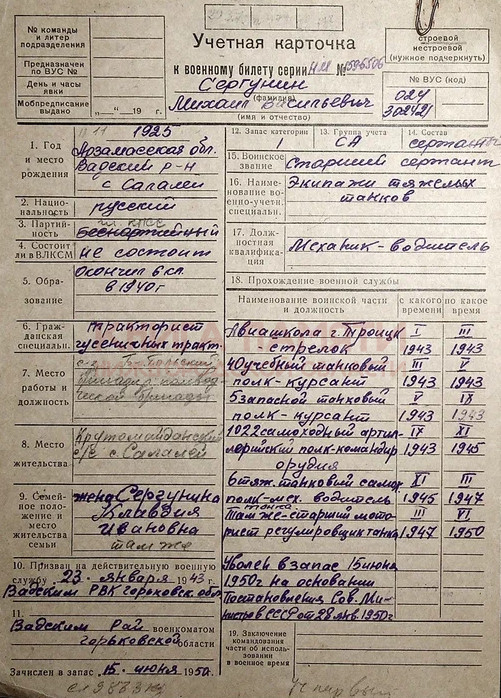 № команды и литер подразделения
Предназначен по ВУС №
День и часы явки
Мобпредписание выдано „ “ 19 г.
Учетная карточка
к военному билету серии НМ № 1596506
Сергунин
(фамилия)
Михаил Васильевич
(имя и отчество)
строевой
нестроевой
(нужное подчеркнуть)
№ ВУС (код)
024
302421
1. Год и место рождения
11 1925
Арзамасская обл.
Вадский р-н
с Салалеи
2. Национальность
русский
3. Партийность
чл КПСС
Беспартийный
4. Состоит ли в ВЛКСМ
не состоит
5. Образование
Окончил 6 кл.
в 1940г
6. Гражданская специальн.
тракторист
гусеничных тракт.
7. Место работы и должность
8. Место жительства
Крутомайданский
с/с с. Салалей
9. Семейное положение и место жительства семьи
жена Сергунина
Клавдия
Ивановна
там же
10. Призван на действительную военную службу „23“ января 1943 г.
Вадским РВК Горьковск. обл
11.
Вадским Рай военкоматом
Горьковской области
Зачислен в запас „15“ июня 1950 г.
12. Запас категории
I
13. Группа учета
СА
14. Состав
сержант
15. Воинское звание
Старший сержант
16. Наименование военно-учетн. специальн.
Экипажи тяжелых
танков
17. Должностная квалификация
Механик-водитель
18. Прохождение военной службы
Наименование воинской части и должность
с какого времени
по какое время
Авиашкола г Троицк I III
стрелок 1943 1943
40 учебный танковый III V
полк-курсант 1943 1943
5 запасной танковый V IX
полк-курсант 1943 1943
1022 самоходный артил- IX XI
лерийский полк-командир 1943 1945
орудия
6 тяж. танковый самох. XI III
полк-мех. водитель 1945 1947
танка
Там же-старший мото- III VI
рист регулировщик танка 1947 1950
Уволен в запас 15 июня
1950г на основании
Постановления Сов. Ми-
нистров СССР от 28 янв. 1950г
19. Заключение командования части об использовании в военное время